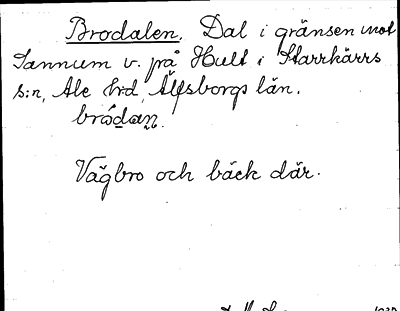 Brodalen. Dal i gränsen mot
Sannum v. på Hult i Starrkärrs
s:n, Ale hrd, Älfsborgs län.
brodan.
Vägbro och bäck där.